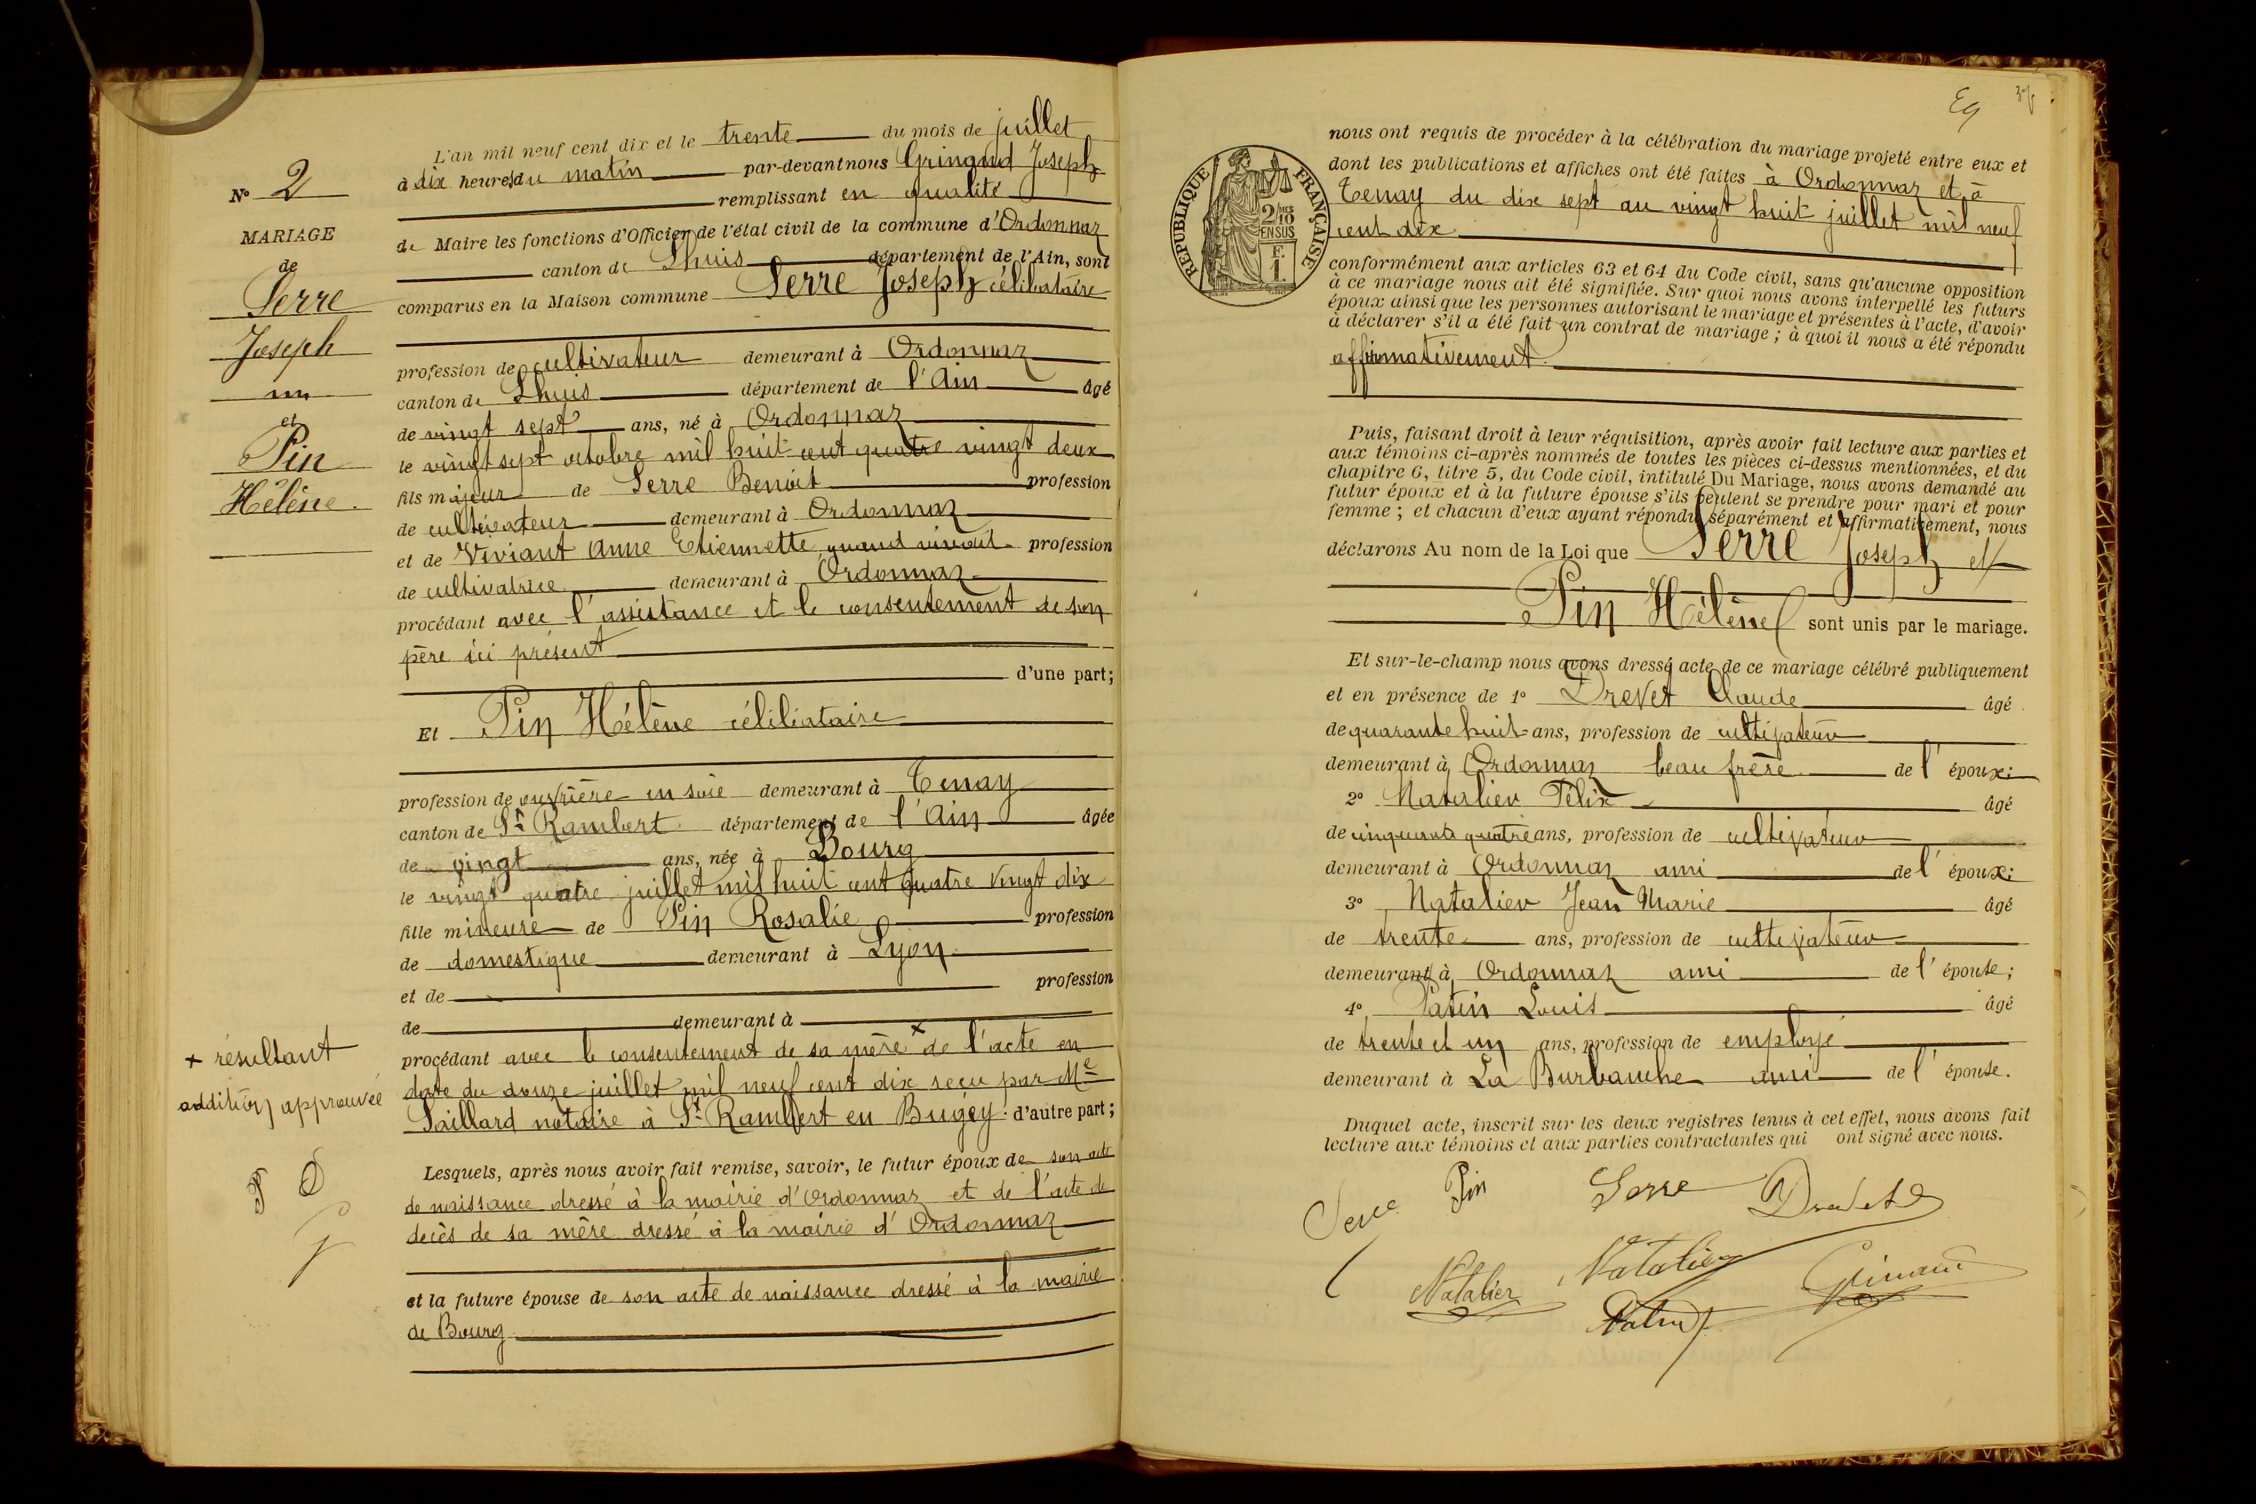 L'an mil neuf cent dix et le trente du mois de juillet
à dix heures du matin par-devant nous Grinand Joseph
remplissant en qualité
de Maire les fonctions d'Officier de l'état civil de la commune d'Ordonnaz
canton de Lhuis département de l'Ain, sont
comparus en la Maison commune Serre Joseph célibataire
profession de cultivateur demeurant à Ordonnaz
canton de Lhuis département de l'Ain âgé
de vingt sept ans, né à Ordonnaz
le vingt sept octobre mil huit cent quatre vingt deux
fils majeur de Serre Benoit profession
de cultivateur demeurant à Ordonnaz
et de Viviant Anne Etiennette quand vivait profession
de cultivatrice demeurant à Ordonnaz
procédant avec l'assistance et le consentement de son
père ici présent
d'une part;
Et Pin Hélène célibataire
profession de ouvrière en soie demeurant à Tenay
canton de St Rambert département de l'Ain âgée
de vingt ans, née à Bourg
le vingt quatre juillet mil huit cent quatre vingt dix
fille mineure de Pin Rosalie profession
de domestique demeurant à Lyon
et de profession
de demeurant à
procédant avec le consentement de sa mère x de l'acte en
date du douze juillet mil neuf cent dix reçu par Me
Saillard notaire à St Rambert en Bugey d'autre part;
Lesquels, après nous avoir fait remise, savoir, le futur époux de son acte
de naissance dressé à la mairie d'Ordonnaz et de l'acte de
decès de sa mère dressé à la mairie d'Ordonnaz
et la future épouse de son acte de naissance dressé à la mairie
de Bourg
No 2
MARIAGE
de
Serre
Joseph
et
Pin
Hélène.
x résultant
addition approuvée
nous ont requis de procéder à la célébration du mariage projeté entre eux et
dont les publications et affiches ont été faites à Ordonnaz et à
Tenay du dix sept au vingt huit juillet mil neuf
cent dix
conformément aux articles 63 et 64 du Code civil, sans qu'aucune opposition
à ce mariage nous ait été signifiée. Sur quoi nous avons interpellé les futurs
époux ainsi que les personnes autorisant le mariage et présentes à l'acte, d'avoir
à déclarer s'il a été fait un contrat de mariage; à quoi il nous a été répondu
affirmativement.
Puis, faisant droit à leur réquisition, après avoir fait lecture aux parties et
aux témoins ci-après nommés de toutes les pièces ci-dessus mentionnées, et du
chapitre 6, titre 5, du Code civil, intitulé Du Mariage, nous avons demandé au
futur époux et à la future épouse s'ils veulent se prendre pour mari et pour
femme; et chacun d'eux ayant répondu séparément et affirmativement, nous
déclarons Au nom de la Loi que Serre Joseph et
Pin Hélène sont unis par le mariage.
Et sur-le-champ nous avons dressé acte de ce mariage célébré publiquement
et en présence de 1o Drevet Claude âgé
de quarante huit ans, profession de cultivateur
demeurant à Ordonnaz beau frère de l'époux;
2o Natalier Félix âgé
de cinquante quatre ans, profession de cultivateur
demeurant à Ordonnaz ami de l'époux;
3o Natalier Jean Marie âgé
de trente ans, profession de cultivateur
demeurant à Ordonnaz ami de l'épouse;
4o Patin Louis âgé
de trente et un ans, profession de employé
demeurant à La Burbanche ami de l'épouse.
Duquel acte, inscrit sur les deux registres tenus à cet effet, nous avons fait
lecture aux témoins et aux parties contractantes qui ont signé avec nous.
Serre Pin Serre Drevet
Natalier Natalier Grinand
RÉPUBLIQUE FRANÇAISE
2/10
EN SUS
F.
1.